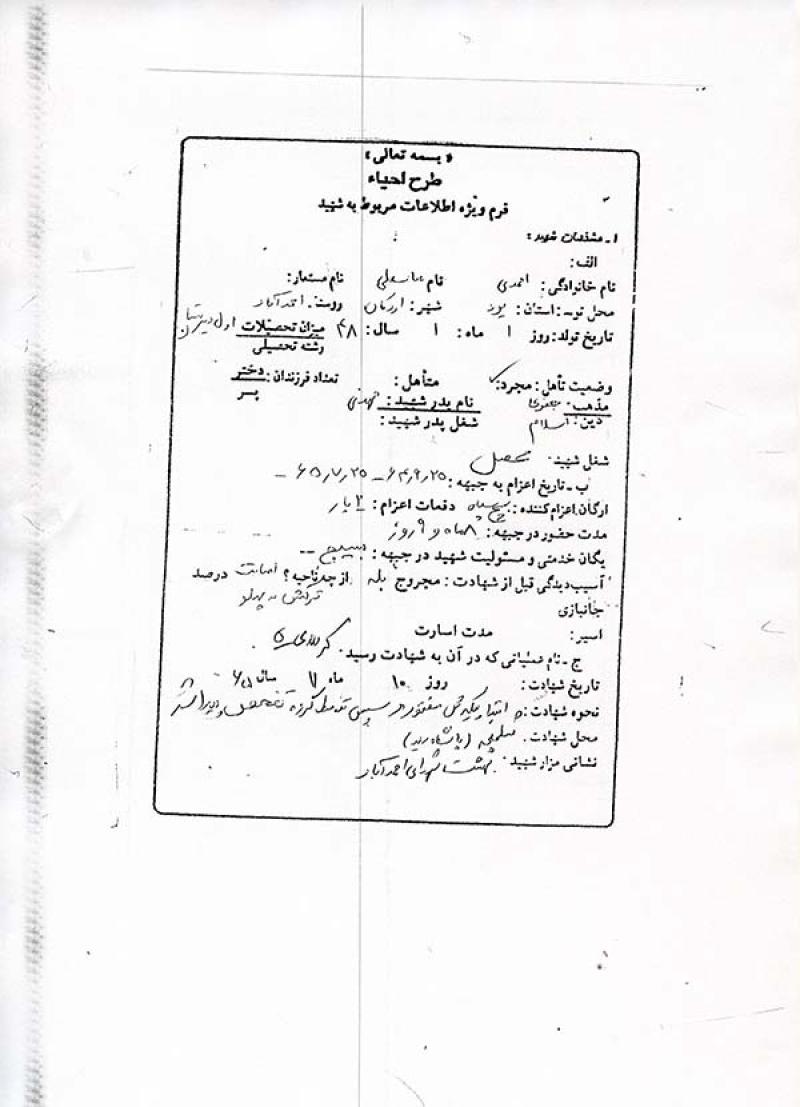 «بسمه تعالی»
طرح احیاء
فرم ویژه اطلاعات مربوط به شهید
۱ـ مشخصات شهید:
الف:
نام خانوادگی: احمدی نام عباسعلی نام مستعار:
محل تولد: استان: یزد شهر: اردکان روستا: احمدآباد
تاریخ تولد: روز ۱ ماه: ۱ سال: ۴۸ میزان تحصیلات اول دبیرستان
رشته تحصیلی
وضعیت تأهل: مجرد: ✓ متأهل: تعداد فرزندان: دختر
پسر
مذهب: جعفری نام پدر شهید:
دین: اسلام شغل پدر شهید:
شغل شهید: محصل
ب ـ تاریخ اعزام به جبهه: ۶۴٫۹٫۲۵ – ۶۵٫۷٫۲۵ –
ارگان اعزام کننده: سپاه دفعات اعزام: ۲ بار
مدت حضور در جبهه: ۸ ماه و ۹ روز
یگان خدمتی و مسئولیت شهید در جبهه: بسیج --
آسیب دیدگی قبل از شهادت: مجروح بله از چه ناحیه؟ اصابت درصد
جانبازی ترکش به پهلو
اسیر: مدت اسارت
ج ـ نام عملیاتی که در آن به شهادت رسید: کربلای ۵
تاریخ شهادت: روز ۱۰ ماه ۱۱ سال ۶۵
نحوه شهادت: مفقود سپس
محل شهادت: شلمچه
نشانی مزار شهید: بهشت شهدای احمدآباد